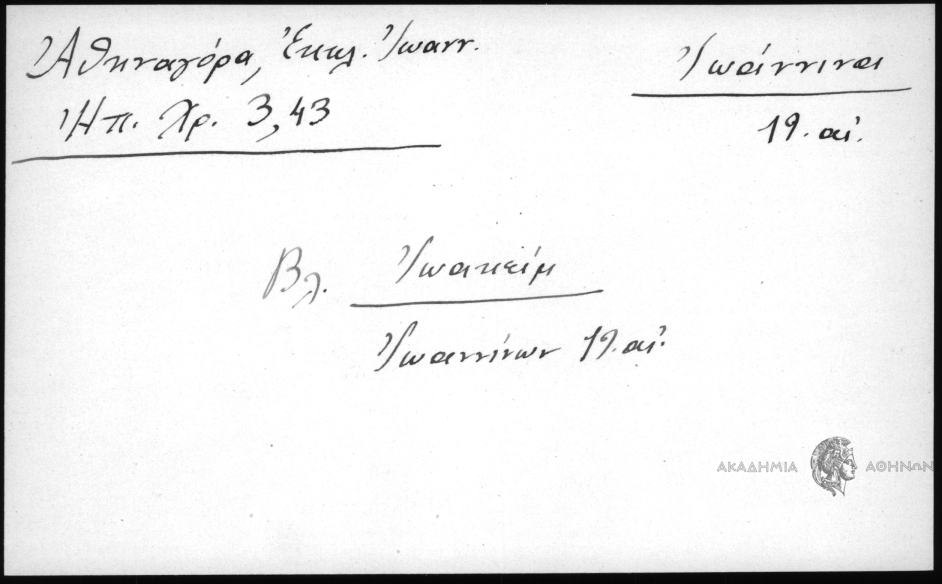 Ἀθηναγόρα, Ἐκκλ. Ἰωανν.
Ἠπ. Χρ. 3,43
Ἰωάννιναι
19. αἰ.
Βλ. Ἰωακείμ
Ἰωαννίνων 19. αἰ.
ΑΚΑΔΗΜΙΑ ΑΘΗΝΩΝ